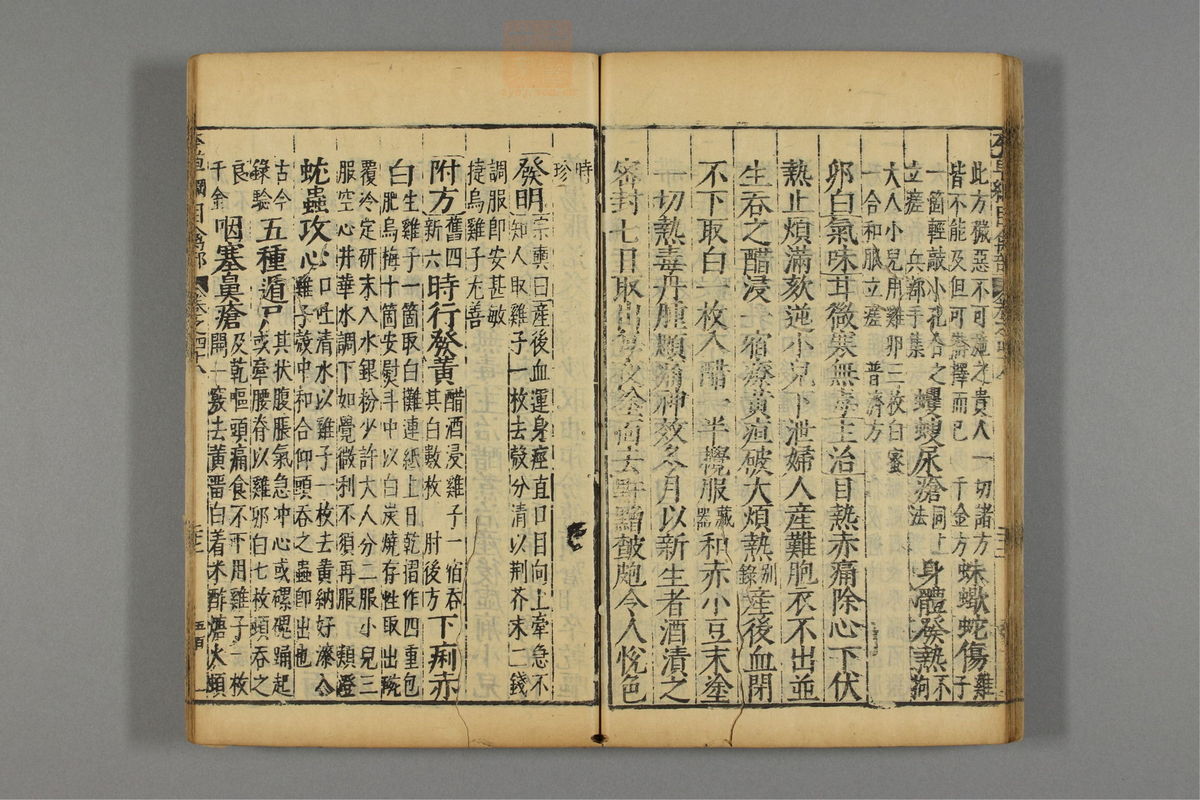 此方穢惡不可施之貴人一切諸方
皆不能及但可擇而已 千金方 蛛蠍蛇傷雞子
一箇輕敲小孔合之
立瘥 兵部手集 蠼螋尿瘡同上法 身體發熱不拘
大人小兒用雞卵三枚白蜜
一合和服立瘥 普濟方
卵白氣味甘微寒無毒主治目熱赤痛除心下伏
熱止煩滿欬逆小兒下泄婦人產難胞衣不出並
生吞之醋浸一宿療黃疸破大煩熱別錄產後血閉
不下取白一枚入醋一半攪服藏器和赤小豆末塗
一切熱毒丹腫腮痛神效冬月以新生者酒漬之
密封七日取出每夜塗面去䵟䵳皶皰令人悅色
時
珍
發明宗奭曰產後血運身痙直口目向上牽急不
知人取雞子一枚去殼分清以荆芥末二錢
調服即安甚敏
捷烏雞子尤善
附方舊四新六時行發黃醋酒浸雞子一宿吞
其白數枚 肘後方 下痢赤
白生雞子一箇取白攤連紙上日乾摺作四重包
肥烏梅十箇安熨斗中以白炭燒存性取出盌
覆冷定研末入水銀粉少許大人分二服小兒三
服空心井華水調下如覺微利不須再服 類證
蚘蟲攻心口吐清水以雞子一枚去黃納好漆入
雞子殼中和合仰頭吞之蟲即出也
古今
錄驗 五種遁尸其狀腹脹氣急冲心或磥磈踊起
或牽腰脊以雞卵白七枚頓吞之
千金 咽塞鼻瘡及乾嘔頭痛食不下用雞子一枚
開一竅去黃留白着米酢煻火頓
本草綱目禽部 卷之四十八